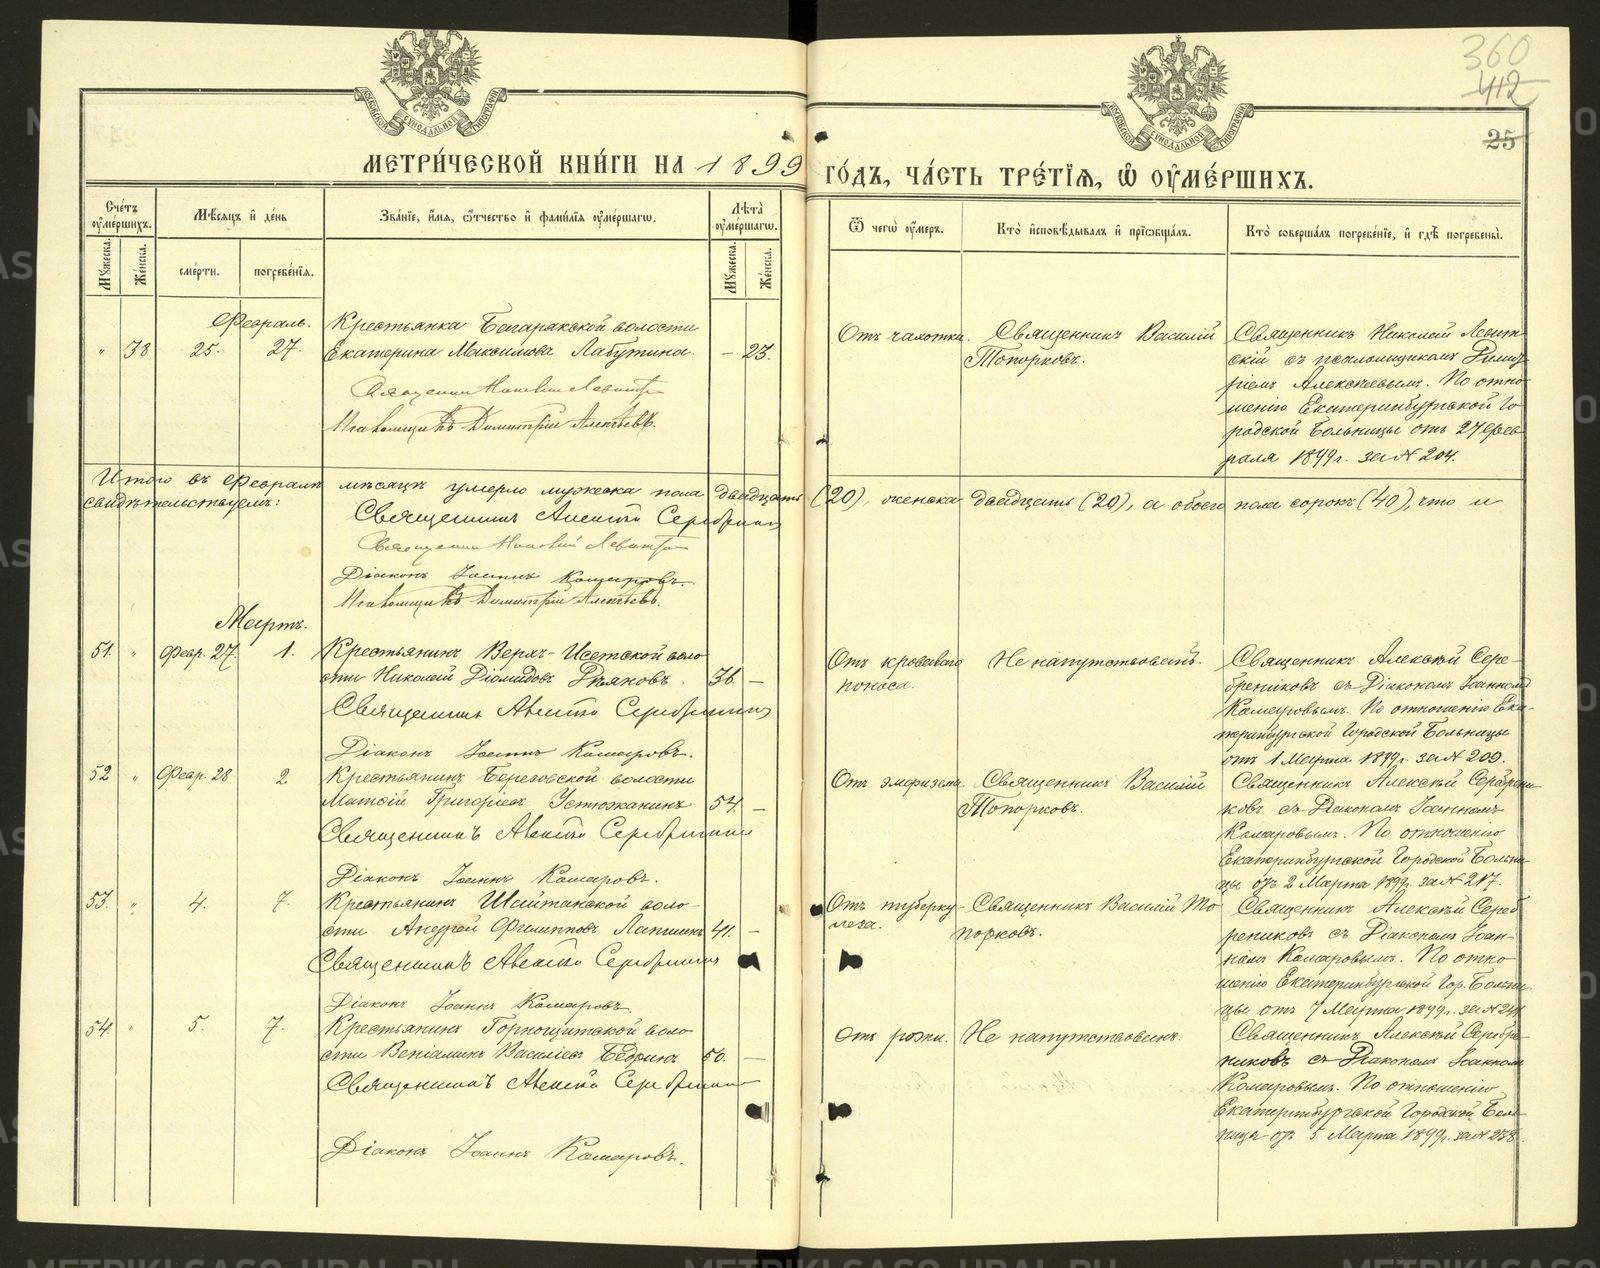 360
412
25
МЕТРИ́ЧЕСКОЙ КНИ́ГИ НА 1899 ГО́ДЪ, ЧА́СТЬ ТРЕ́ТІѦ, Ѡ ОУ҆МЕ́РШИХЪ.
МОСКОВСКОЙ СѴНОДАЛЬНОЙ ТИПОГРАФІИ
МОСКОВСКОЙ СѴНОДАЛЬНОЙ ТИПОГРАФІИ
Сче́тъ оу҆ме́ршихъ.
Мꙋ́жеска.
Же́нска.
Мѣ́сяцъ и҆ де́нь
сме́рти.
погребе́нїя.
Зва́нїе, и҆́мѧ, ѻ҆́тчество и҆ фами́лїя оу҆ме́ршагѡ.
Лѣ́та оу҆ме́ршагѡ.
Мꙋ́жеска.
Же́нска.
Ѿ чегѡ̀ оу҆́меръ.
Кто̀ и҆сповѣ́дывалъ и҆ прїѡбща́лъ.
Кто̀ соверша́лъ погребе́нїе, и҆ гдѣ̀ погребены̀.
Февраль.
" 38 25. 27.
Крестьянка Багарякской волости
Екатерина Максимова Лабутина. – 23.
Священник Николай Левит
Псаломщикъ Димитрій Алексѣевъ.
Отъ чахотки.
Священникъ Василій
Топорковъ.
Священникъ Николай Левит-
скій съ псаломщикомъ Димит-
ріемъ Алексѣевымъ. По отно-
шенію Екатеринбургской Го-
родской Больницы отъ 27 Фев-
раля 1899 г. за № 204.
Итого въ Февралѣ мѣсяцѣ умерло мужеска пола двадцать (20), женска двадцать (20), а обоего пола сорокъ (40), что и
свидѣтельствуемъ:
Священникъ Алексѣй Серебрениковъ
Священник Николай Левит
Діаконъ Іоаннъ Комаровъ.
Псаломщикъ Димитрій Алексѣевъ.
Мартъ.
51. " Февр. 27. 1.
Крестьянинъ Верхъ-Исетской воло
сти Николай Діомидовъ 36 –
Священникъ Алексѣй Серебрениковъ
Діаконъ Іоаннъ Комаровъ.
Отъ кроваваго
поноса.
Не напутствованъ.
Священникъ Алексѣй Сере-
брениковъ съ Діакономъ Іоанномъ
Комаровымъ. По отношенію Ека-
теринбургской Городской Больницы
отъ 1 Марта 1899 г. за № 209.
52 " Февр. 28 2
Крестьянинъ Березовской волости
Матѳій Григорьевъ Устюжанинъ 54. –
Священникъ Алексѣй Серебрениковъ
Діаконъ Іоаннъ Комаровъ.
Отъ эмфиземы
Священникъ Василій
Топорковъ.
Священникъ Алексѣй Серебрени-
ковъ съ Діакономъ Іоанномъ
Комаровымъ. По отношенію
Екатеринбургской Городской Больни
цы отъ 2 Марта 1899 г. за № 217.
53. " 4. 7.
Крестьянинъ Шайтанской воло-
сти Андрей Филипповъ Лапшинъ 41. –
Священникъ Алексѣй Серебрениковъ
Діаконъ Іоаннъ Комаровъ
Отъ туберку
леза.
Священникъ Василій То
порковъ.
Священникъ Алексѣй Сереб
рениковъ съ Діакономъ Іоан-
номъ Комаровымъ. По отно
шенію Екатеринбургской Гор. Больни
цы отъ 7 Марта 1899 г. за №
54. " 5. 7.
Крестьянинъ Горнощитской воло
сти Веніаминъ Василіевъ 50. –
Священникъ Алексѣй Серебрениковъ
Діаконъ Іоаннъ Комаровъ.
Отъ рожи.
Не напутствованъ.
Священникъ Алексѣй Серебре-
никовъ съ Діакономъ Іоанномъ
Комаровымъ. По отношенію
Екатеринбургской Городской Боль
ницы отъ 5 Марта 1899 г. за № 238.
METRIKI.SASO-URAL.RU